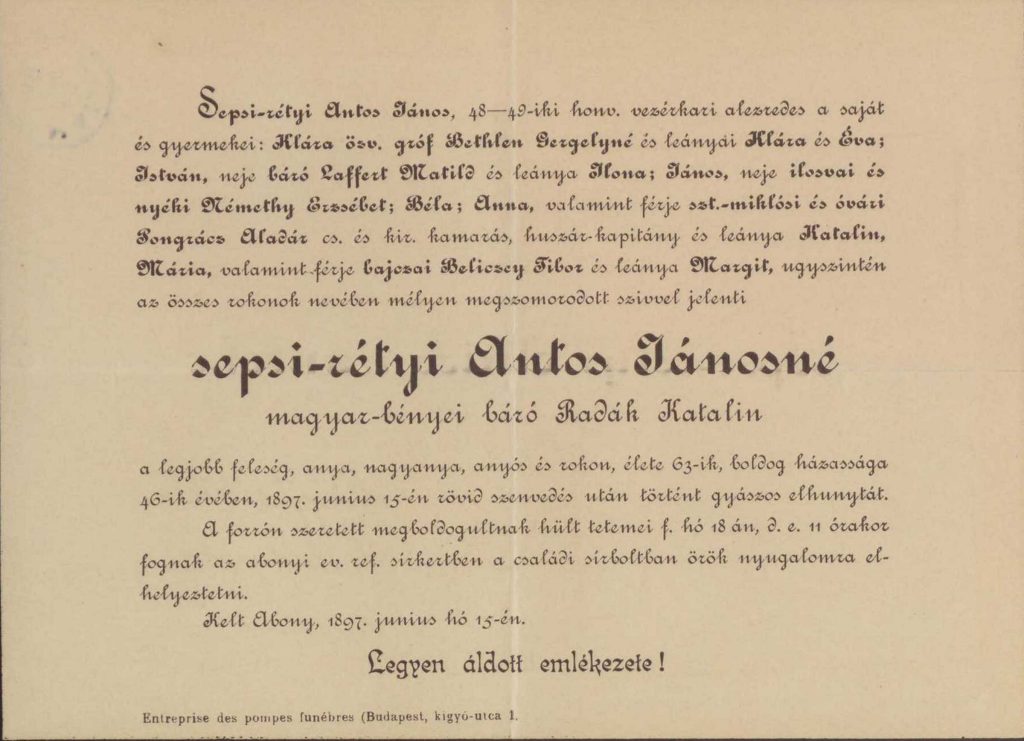 Sepsi-rétyi Antos János, 48—49-iki honv. vezérkari alezredes a saját
és gyermekei: Klára özv. gróf Bethlen Gergelyné és leányai Klára és Éva;
István, neje báró Laffert Matild és leánya Ilona; János, neje ilosvai és
nyéki Némethy Erzsébet; Béla; Anna, valamint férje szt.-miklósi és óvári
Pongrácz Aladár cs. és kir. kamarás, huszár-kapitány és leánya Katalin,
Mária, valamint férje bajczai Beliczey Tibor és leánya Margit, ugyszintén
az összes rokonok nevében mélyen megszomorodott szivvel jelenti
sepsi-rétyi Antos Jánosné
magyar-bényei báró Radák Katalin
a legjobb feleség, anya, nagyanya, anyós és rokon, élete 63-ik, boldog házassága
46-ik évében, 1897. junius 15-én rövid szenvedés után történt gyászos elhunytát.
A forrón szeretett megboldogultnak hült tetemei f. hó 18 án, d. e. 11 órakor
fognak az abonyi ev. ref. sírkertben a családi sírboltban örök nyugalomra el-
helyeztetni.
Kelt Abony, 1897. junius hó 15-én.
Legyen áldott emlékezete!
Entreprise des pompes funébres (Budapest, kigyó-utca 1.